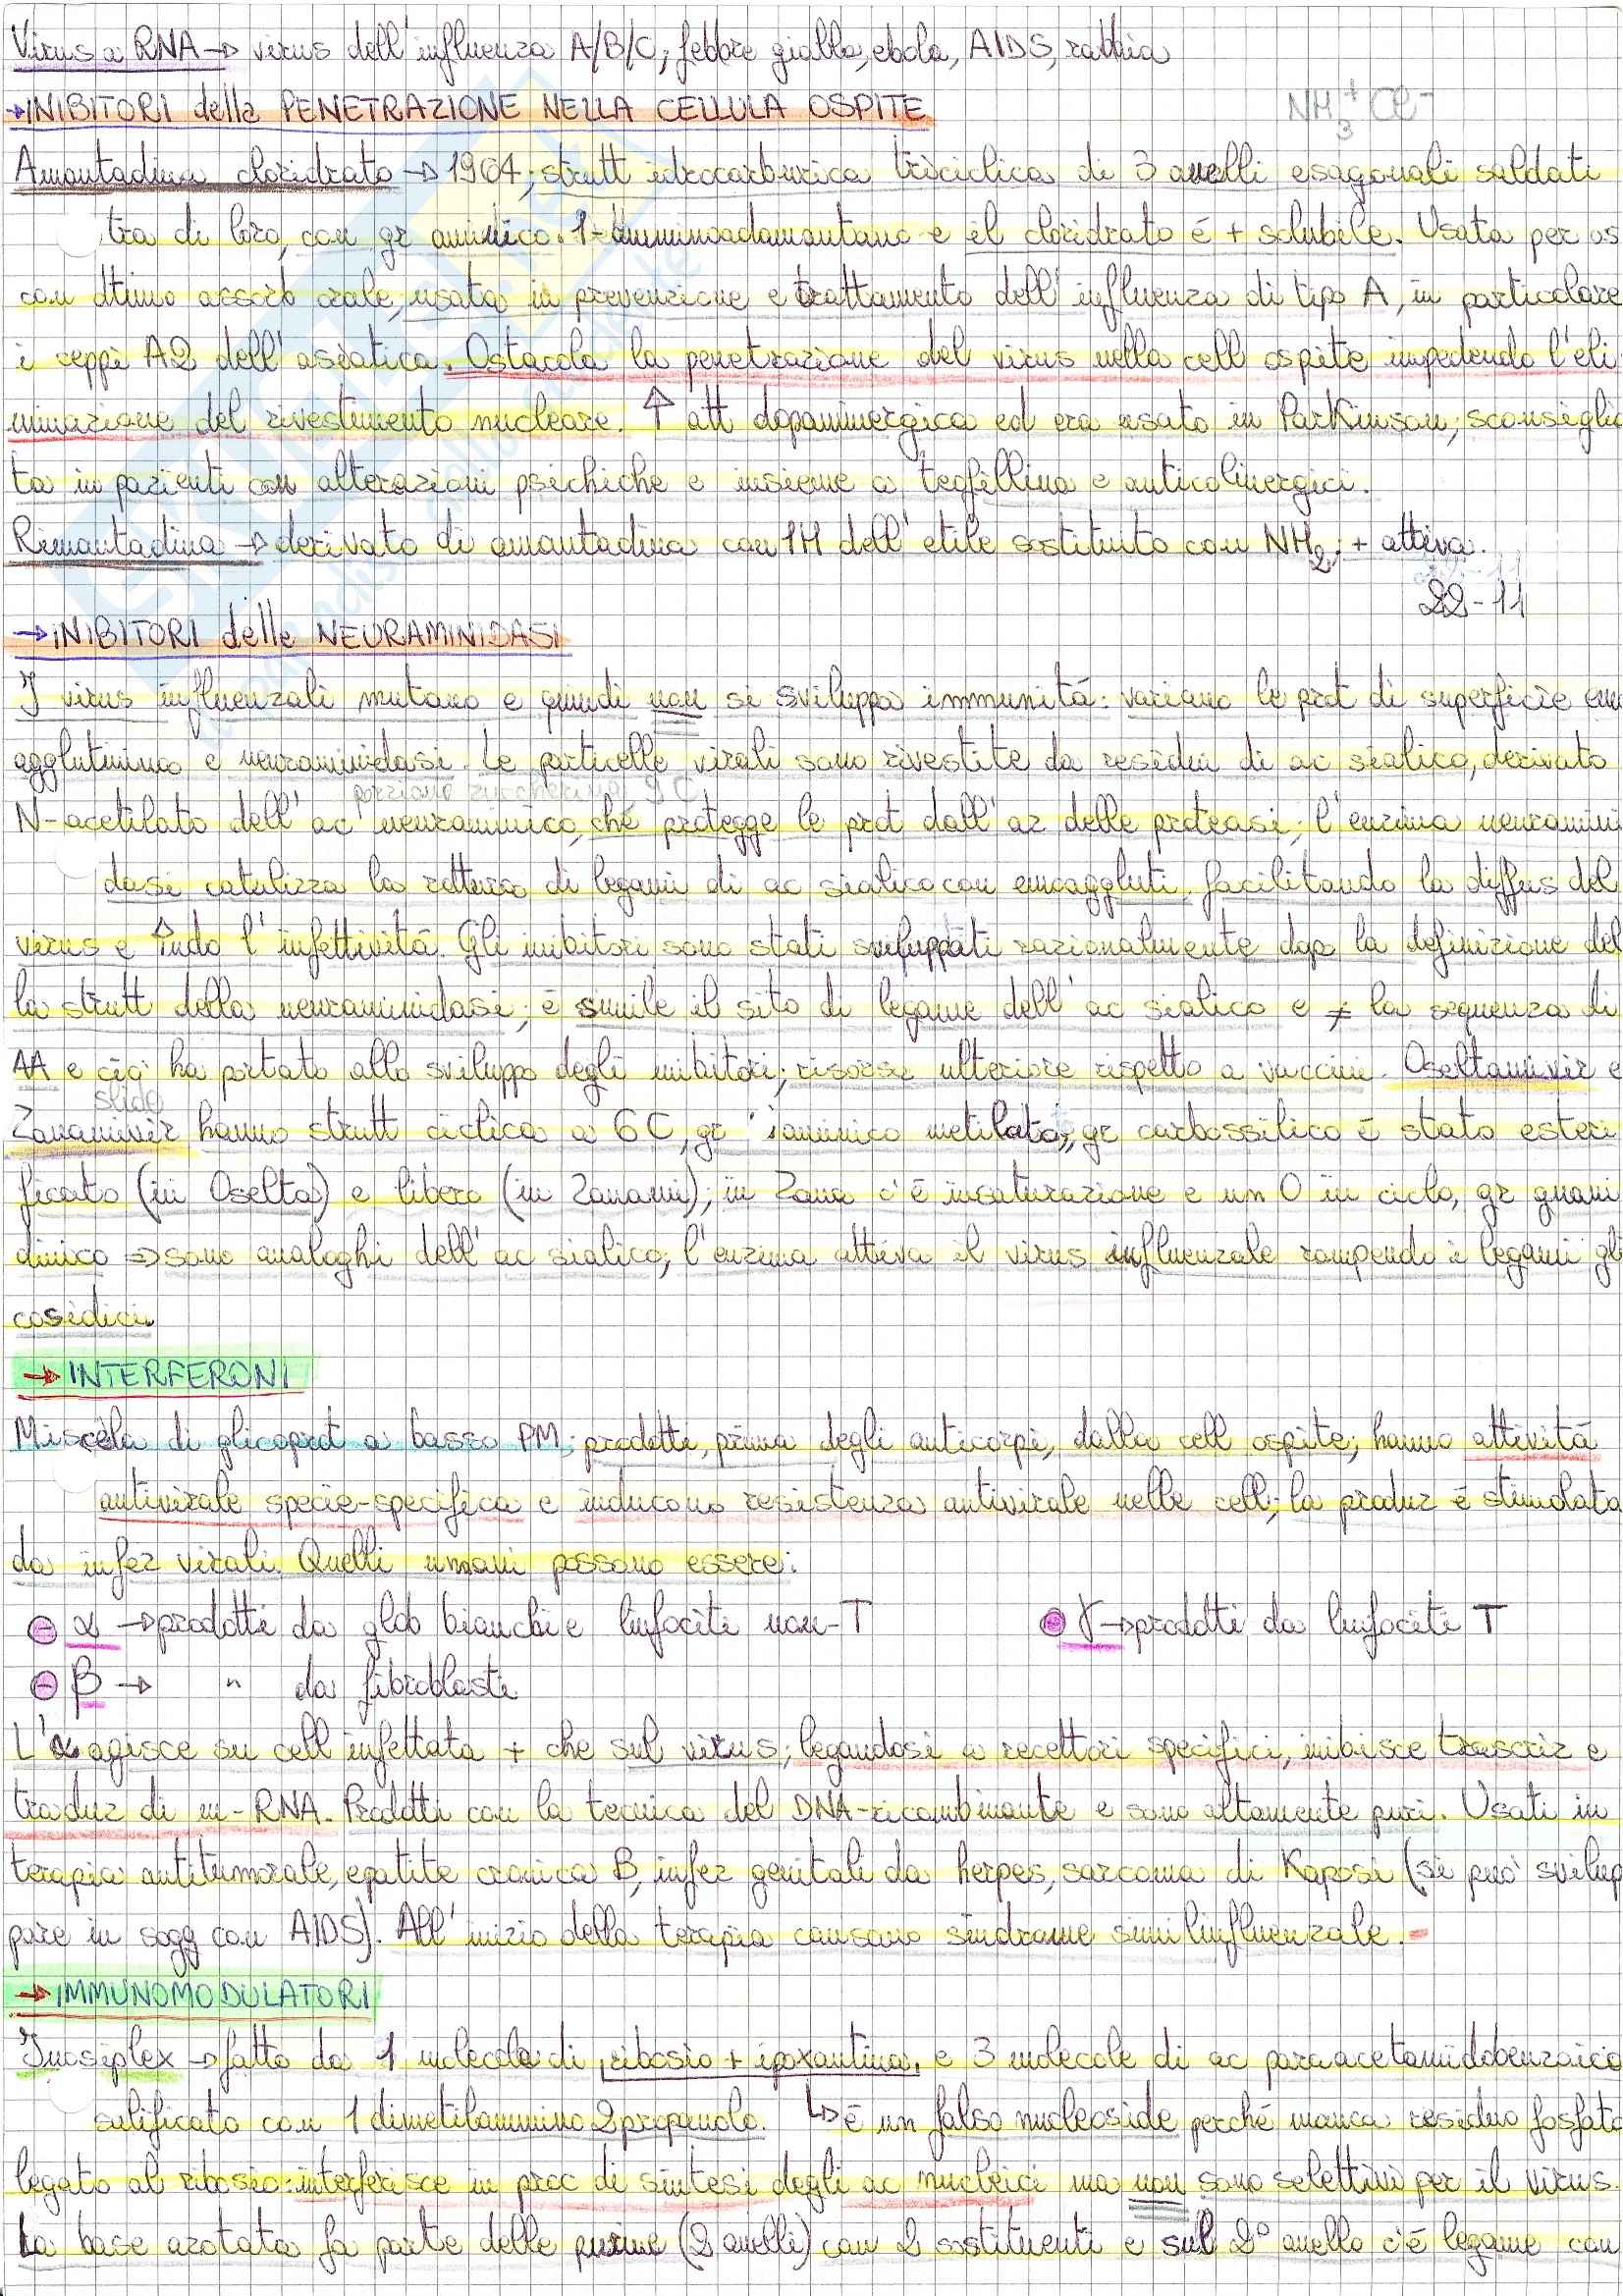 Virus a RNA → virus dell'influenza A/B/C; febbre gialla, ebola, AIDS, rabbia
→ INIBITORI della PENETRAZIONE NELLA CELLULA OSPITE
NH3+ Cl-
Amantadina cloridrato → 1964; strutt idrocarburica triciclica di 3 anelli esagonali saldati
tra di loro, con gr aminico. 1-amminoadamantano e il cloridrato é + solubile. Usata per os
con ottimo assorb orale, usata in prevenzione e trattamento dell'influenza di tipo A, in particolare
i ceppi A2 dell'asiatica. Ostacola la penetrazione del virus nella cell ospite impedendo l'eli
minazione del rivestimento nucleare. ↑ att dopaminergica ed era usato in Parkinson; sconsiglia
ta in pazienti con alterazioni psichiche e insieme a teofillina e anticolinergici.
Rimantadina → derivato di amantadina con 1H dell'etile sostituito con NH2; + attiva.
22-11
→ INIBITORI delle NEURAMINIDASI
I virus influenzali mutano e quindi non si sviluppa immunitá: variano le prot di superficie emo
agglutinina e neuraminidasi. Le particelle virali sono rivestite da residui di ac sialico, derivato
porzione zuccherina 9C
N-acetilato dell'ac neuraminico, che protegge le prot dall'az delle proteasi; l'enzima neuramini
dasi catalizza la rottura di legami di ac sialico con emoaggluti, facilitando la diffus del
virus e ↑ndo l'infettivitá. Gli inibitori sono stati sviluppati razionalmente dopo la definizione del
la strutt della neuraminidasi; é simile il sito di legame dell'ac sialico e ≠ la sequenza di
AA e ció ha portato allo sviluppo degli inibitori; risorsa ulteriore rispetto a vaccini. Oseltamivir e
slide
Zanamivir hanno strutt ciclica a 6C, gr iaminico metilato; gr carbossilico é stato esteri
ficato (in Oselta) e libero (in Zanami); in Zana c'é insaturazione e un O in ciclo, gr guani
dinico ⇒ sono analoghi dell'ac sialico; l'enzima attiva il virus influenzale rompendo i legami gli
cosidici.
→ INTERFERONI
Miscela di glicoprot a basso PM; prodotti, prima degli anticorpi, dalla cell ospite; hanno attivitá
antivirale specie-specifica e inducono resistenza antivirale nelle cell; la produz é stimolata
da infez virali. Quelli umani possono essere:
α → prodotti da glob bianchi e linfociti non-T
γ → prodotti da linfociti T
β → " da fibroblasti
L'α agisce su cell infettata + che sul virus; legandosi a recettori specifici, inibisce trascriz e
traduz di m-RNA. Prodotti con la tecnica del DNA-ricombinante e sono altamente puri. Usati in
terapia antitumorale, epatite cronica B, infez genitali da herpes, sarcoma di Kaposi (si puó svilup
pare in sogg con AIDS). All'inizio della terapia causano sindrome similinfluenzale.
→ IMMUNOMODULATORI
Inosiplex → fatto da 1 molecola di ribosio + ipoxantina, e 3 molecole di ac paraacetamidobenzoico
salificato con 1 dimetilammino 2 propanolo. ↳ é un falso nucleoside perché manca residuo fosfato
legato al ribosio: interferisce in proc di sintesi degli ac nucleici ma non sono selettivi per il virus.
La base azotata fa parte delle purine (2 anelli) con 2 sostituenti e sul 2° anello c'é legame con